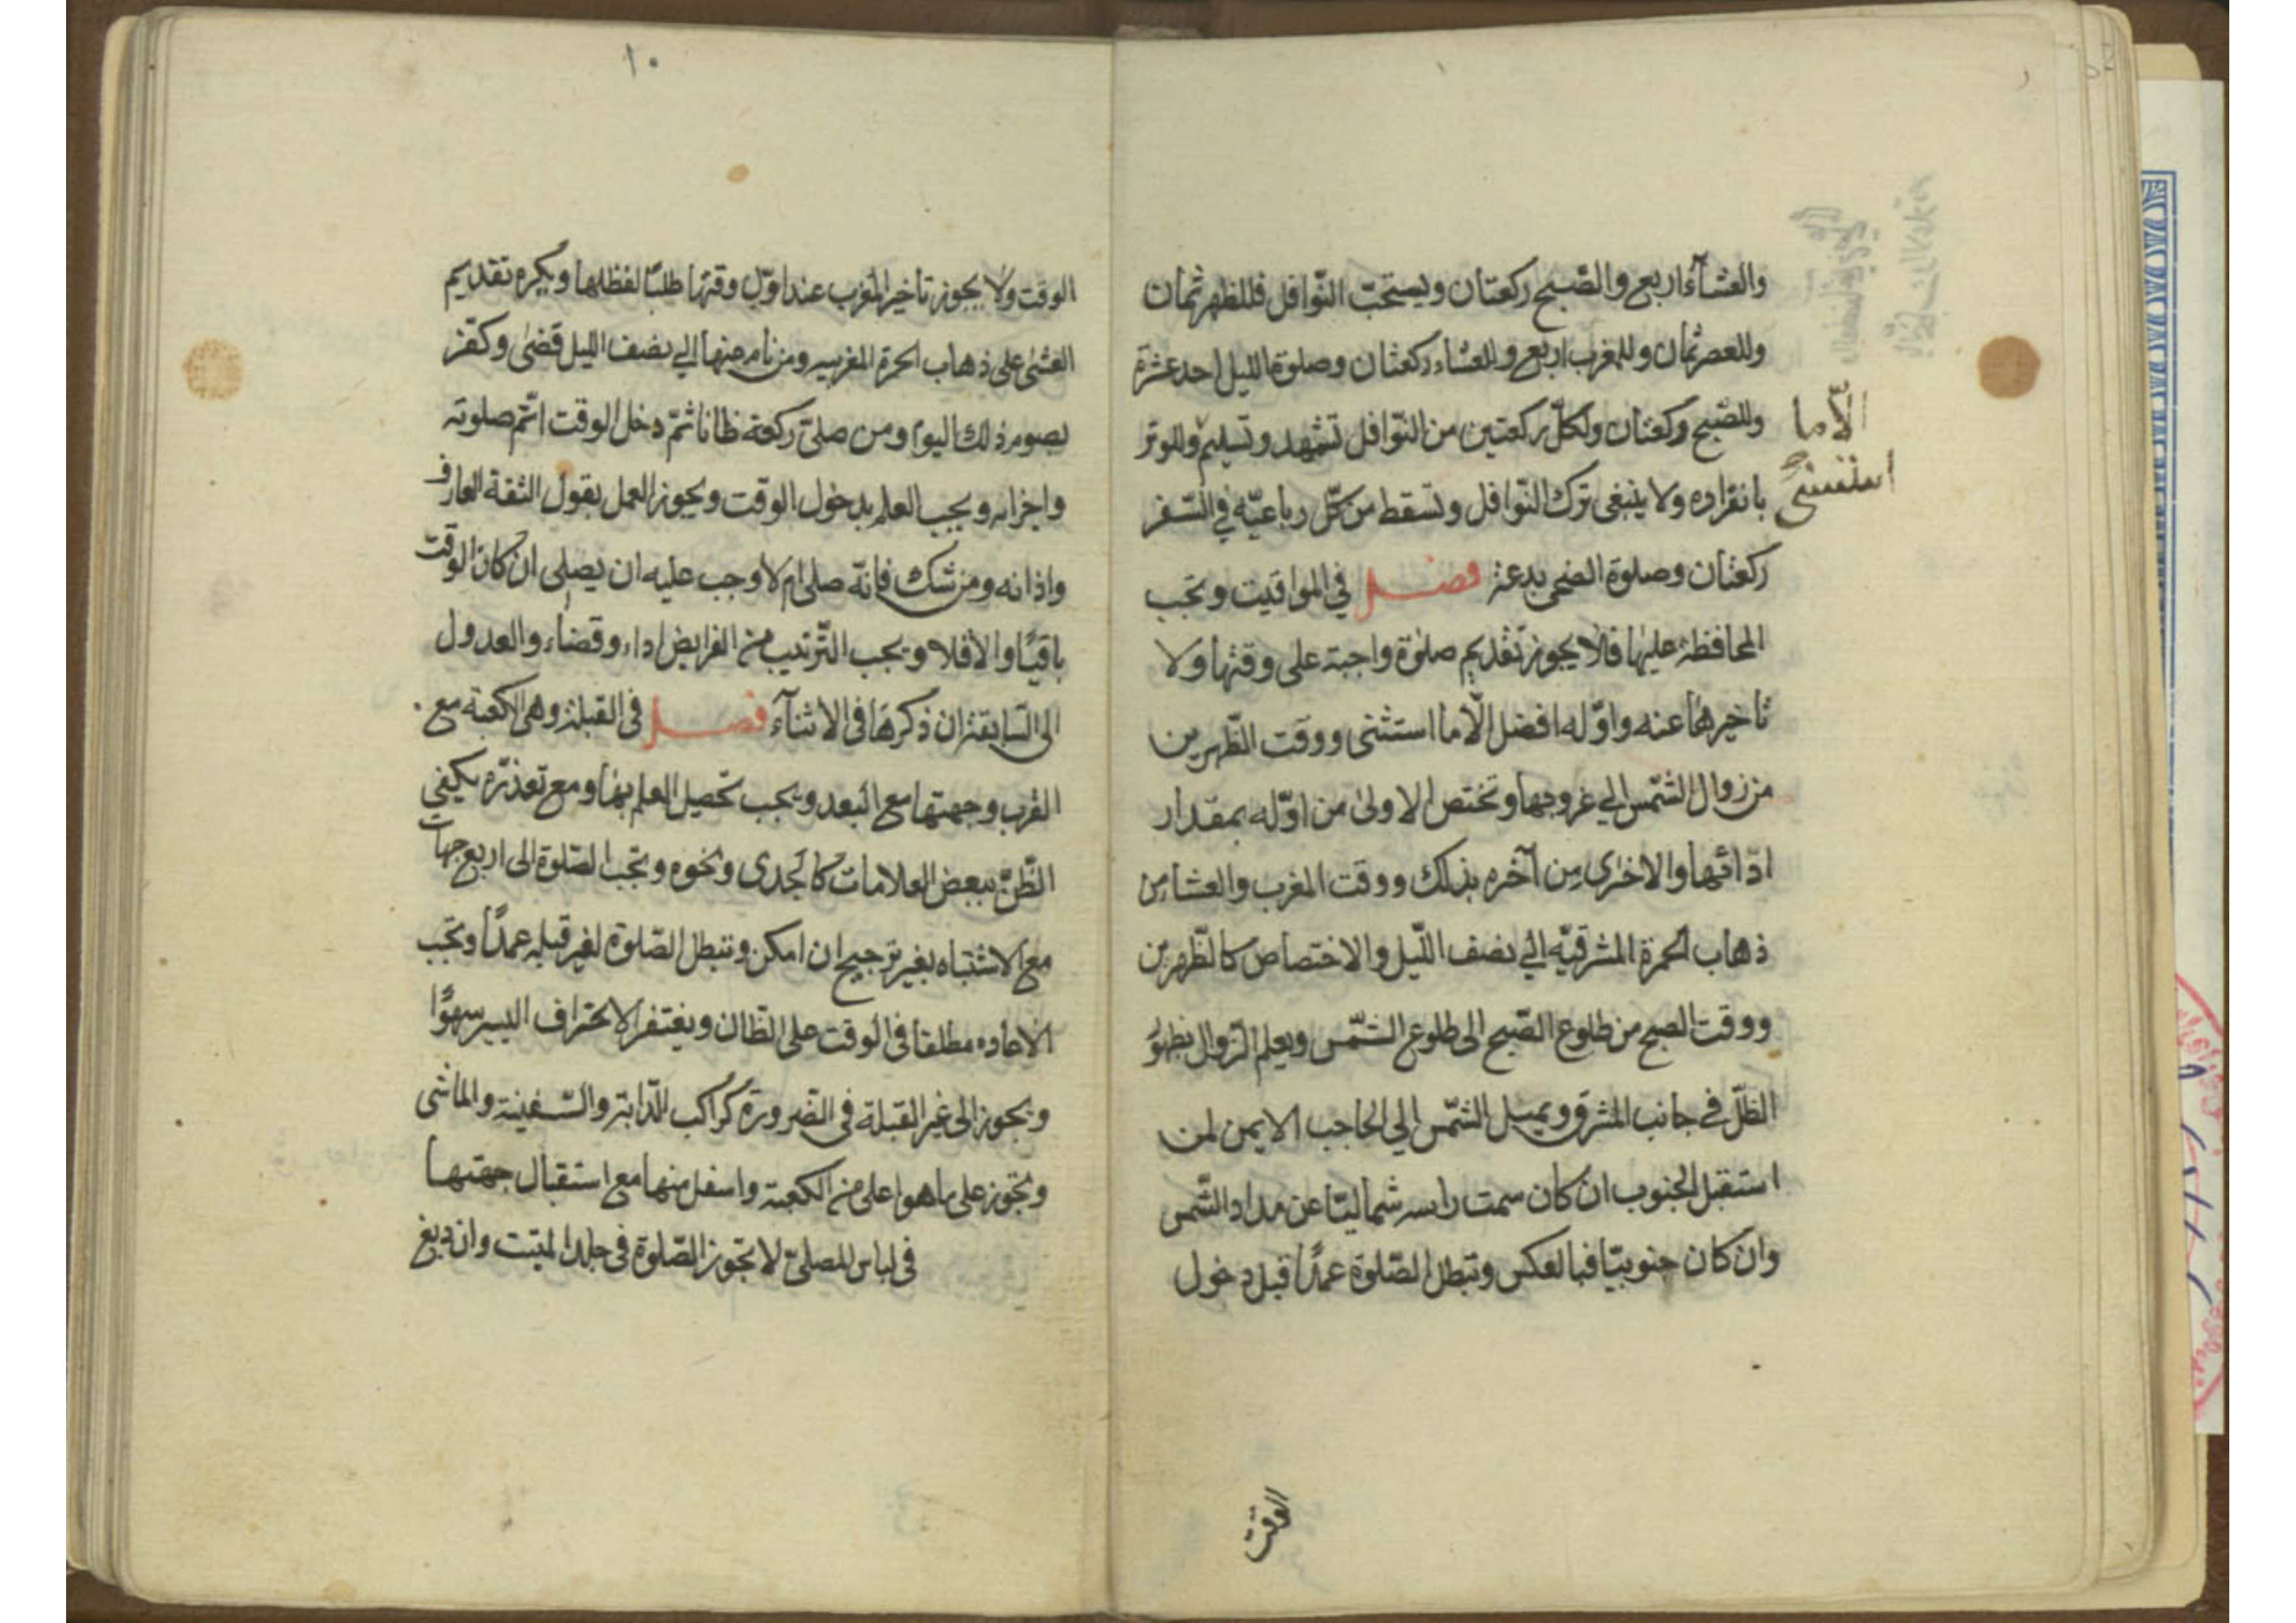 والعشآء اربع والصّبح ركعتان ويستحبّ النّوافل فللظهر ثمان
وللعصر ثمان وللمغرب اربع وللعشاء ركعتان وصلوة الليل احد عشرة
وللصّبح ركعتان ولكلّ ركعتين من النّوافل تشهد وتسليم وللوتر
بانفراده ولا ينبغى ترك النّوافل وتسقط من كلّ رباعيّه في السّفر
ركعتان وصلوة الضحى بدعة فصل في المواقيت وتجب
المحافظة عليها فلا يجوز تقديم صلوة واجبة على وقتها ولا
تاخيرها عنه واوّله افضل الّا ما استثنى ووقت الظّهرين
من زوال الشّمس الي غروبها وتختص الاولى من اوّله بمقدار
ادائها والاخرى من آخره بذلك ووقت المغرب والعشا من
ذهاب الحمرة المشرقيّه الي نصف اللّيل والاختصاص كالظّهرين
ووقت الصبح من طلوع الصّبح الى طلوع الشّمس ويعلم الزّوال بظهور
الظّلّ في جانب المشرق وبميل الشّمس الي الحاجب الايمن لمن
استقبل الجنوب ان كان سمت راسه شماليّا عن مدار الشّمس
وان كان جنوبيّا فبالعكس وتبطل الصّلوة عمدًا قبل دخول
الّا ما
استثنى
الوقت
١٠
الوقت ولا يجوز تاخير المغرب عند اوّل وقتها طلبًا لفظلها ويكره تقديم
العشى على ذهاب الحمرة المغربيه ومن نام عنها الي نصف الليل قضى وكفر
بصوم ذلك اليوم ومن صلىّ ركعة ظانا ثمّ دخل الوقت اتّم صلوته
واجزاه ويجب العلم بدخول الوقت ويجوز العمل بقول الثقة العارف
واذانه ومن شك فانّه صلى ام لا وجب عليه ان يصلى ان كان الوقت
باقيًا والا فلا ويجب التّرتيب من الفرايض اداء وقضاء والعدول
الى السّابقة ان ذكرها فى الاثنآء فصل فى القبلة وهى الكعبة مع
القرب وجهتها مع البعد ويجب تحصيل العلم بها ومع تعذّره يكفي
الظّنّ ببعض العلامات كالجدى ونحوه وتجب الصّلوة الى اربع جهات
مع الاشتباه بغير ترجيح ان امكن وتبطل الصّلوة لغير قبله عمدًا وتجب
الاعاده مطلقا فى الوقت على الظان ويغتفر الانحراف اليسر سهوًا
ويجوز الى غير القبلة فى الضرورة كراكب الدّابة والسّفينة والماشى
وتجوز على ما هو اعلى من الكعبة واسفل منها مع استقبال جهتها
فى لباس المصلىّ لا تجوز الصّلوة فى جلد الميتت وان دبغ